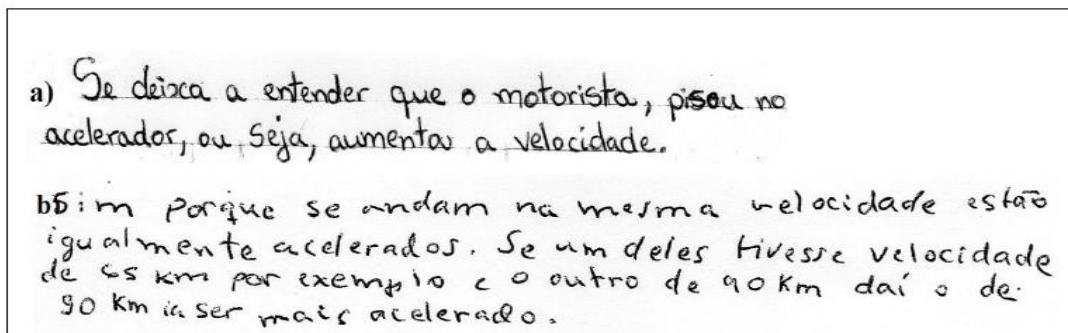 a) Se deixa a entender que o motorista, pisou no
acelerador, ou seja, aumentar a velocidade.
b) Sim porque se andam na mesma velocidade estão
igualmente acelerados. Se um deles tivesse velocidade
de 65 km por exemplo e o outro de 90 Km daí o de
90 Km ia ser mais acelerado.